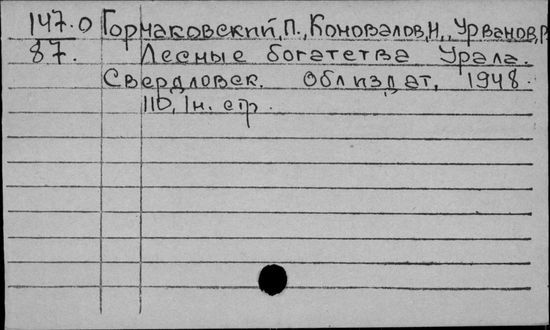 147.0 Горчаковский, П., Коновалов, Н., Урванов, Р.
87. Лесные богатства Урала.
Свердловск. Облиздат, 1948.
110, 1н. стр.